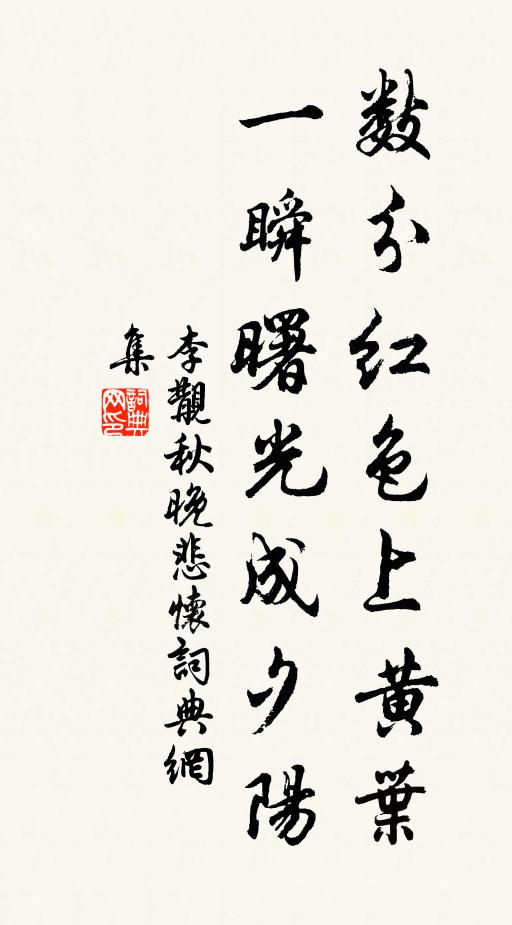 数分红色上黄葉
一瞬曙光成夕陽
李覯秋晚悲懷詞典網
集
詞典
网印